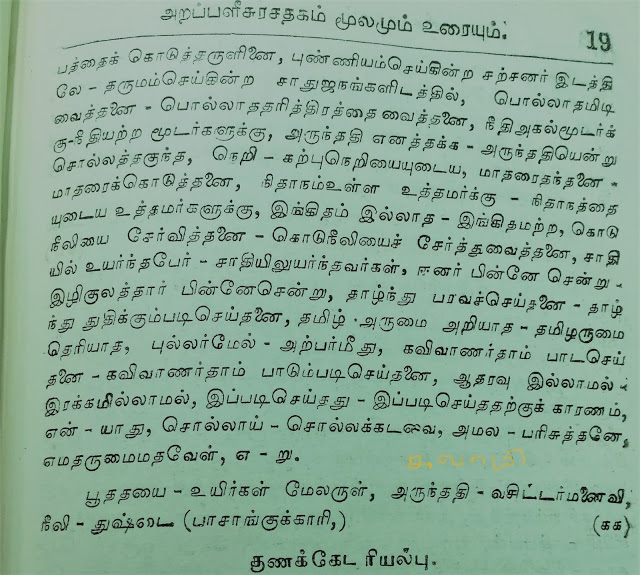 அறப்பளீசுரசதகம் மூலமும் உரையும். 19
பத்தைக் கொடுத்தருளினை, புண்ணியம்செய்கின்ற சற்சனர் இடத்தி
லே - தருமம்செய்கின்ற சாதுஜநங்களிடத்தில், பொல்லாதமிடி
வைத்தனை - பொல்லாததரித்திரத்தை வைத்தனை, நீதிஅகல்மூடர்க்
கு-நீதியற்ற மூடர்களுக்கு, அருந்ததி எனத்தக்க - அருந்ததியென்று
சொல்லத்தகுந்த, நெறி - கற்புநெறியையுடைய, மாதரைதந்தனை -
மாதரைக்கொடுத்தனை, நிதாநம்உள்ள உத்தமர்க்கு - நிதாநத்தை
யுடைய உத்தமர்களுக்கு, இங்கிதம் இல்லாத - இங்கிதமற்ற, கொடு
நீலியை சேர்வித்தனை - கொடுநீலியைச் சேர்த்துவைத்தனை, சாதி
யில் உயர்ந்தபேர் - சாதியிலுயர்ந்தவர்கள், ஈனர் பின்னே சென்று -
இழிகுலத்தார் பின்னேசென்று, தாழ்ந்து பரவச்செய்தனை - தாழ்
ந்து துதிக்கும்படிசெய்தனை, தமிழ் அருமை அறியாத - தமிழருமை
தெரியாத, புல்லர்மேல் - அற்பர்மீது, கவிவாணர்தாம் பாடசெய்
தனை - கவிவாணர்தாம் பாடும்படிசெய்தனை, ஆதரவு இல்லாமல் -
இரக்கமில்லாமல், இப்படிசெய்தது - இப்படிசெய்ததற்குக் காரணம்,
என் - யாது, சொல்லாய் - சொல்லக்கடவை, அமல - பரிசுத்தனே,
எமதருமைமதவேள், எ - று.
பூததயை - உயிர்கள் மேலருள், அருந்ததி - வசிட்டர்மனைவி,
நீலி - துஷ்டை (பாசாங்குக்காரி,) (கக)
குணக்கேட ரியல்பு.